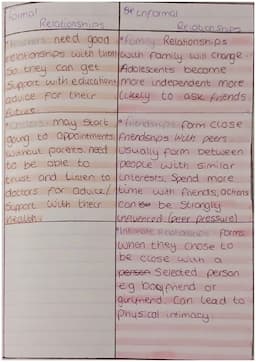 Formal
Relationships
*Teachers need good
relationships with them
so they can get
support with education
advice for their
future
*Doctors may start
going to appointments
without parents need
to be able to
trust and listen to
doctors for advice/
support with their
health.
Informal
Relationships
*Family Relationships
with family will change.
Adolescents become
more independent more
likely to ask friends
*Friendships form close
friendships with peers
usually form between
people with similar
interests. Spend more
time with friends, actions
can be strongly
influenced (peer pressure)
*Intimate Relationships forms
when they chose to
be close with a
person selected person
eg boyfriend or
girlfriend. Can lead to
physical intimacy.